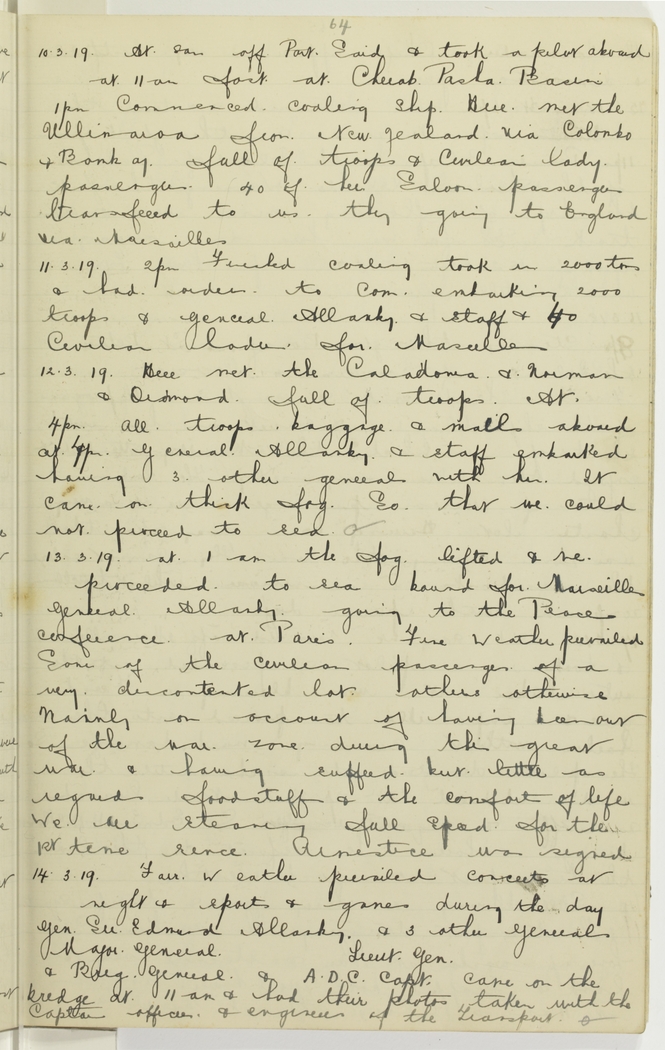 64
10.3.19. At 8am off Port. Said & took a pilot aboard
at 11 am fast at. Cherab. Pasha. Basin
1pm Commenced. coaling ship. Here. met the
Ullimaroa from. New Zealand. via Colombo
& Bombay. full of troops & Civilian lady.
passengers. 40 of her Saloon. passenger
transfeed to us. they going to England
via. Marseilles
11.3.19. 2pm Finished coaling took in 2000 tons
& had. orders. to com. embarking 2000
troops & general. Allanby. & staff & 40
Civilian ladies. for. Marseilles
12.3.19. Here met. the Caladonia. & Norman
& Ormond. full of troops. At.
4pm. all. troops. baggage. & mails aboard
at. 4pm. general. Allanby. & staff embarked
having 3. other generals with him. It
came on thick fog. So. that we. could
not. proceed to sea.
13.3.19. at. 1 am the fog. lifted & we.
proceeded. to sea bound for. Marseilles
general. Allanby. going to the Peace
conference. at. Paris. Fine Weather prevailed
Some of the civilian passengers of a
very. discontented lot. others otherwise
Mainly on account of having been out
of the war. zone. during this great
war. & having suffeed. but. little as
regards foodstuff & the comfort of life
We. are steaming full speed. for the
1st time since. Armestice was signed
14.3.19. Fair. Weather prevailed concerts at
night & sports & games during the day
Gen. Sir. Edmund Allanby. & 3 other Generals
Major. General. Lieut. Gen.
& Brig. General. & A.D.C. Capt. came on the
bredge at. 11 am & had their photos taken with the
Captain officers. & engineers of the Transport.